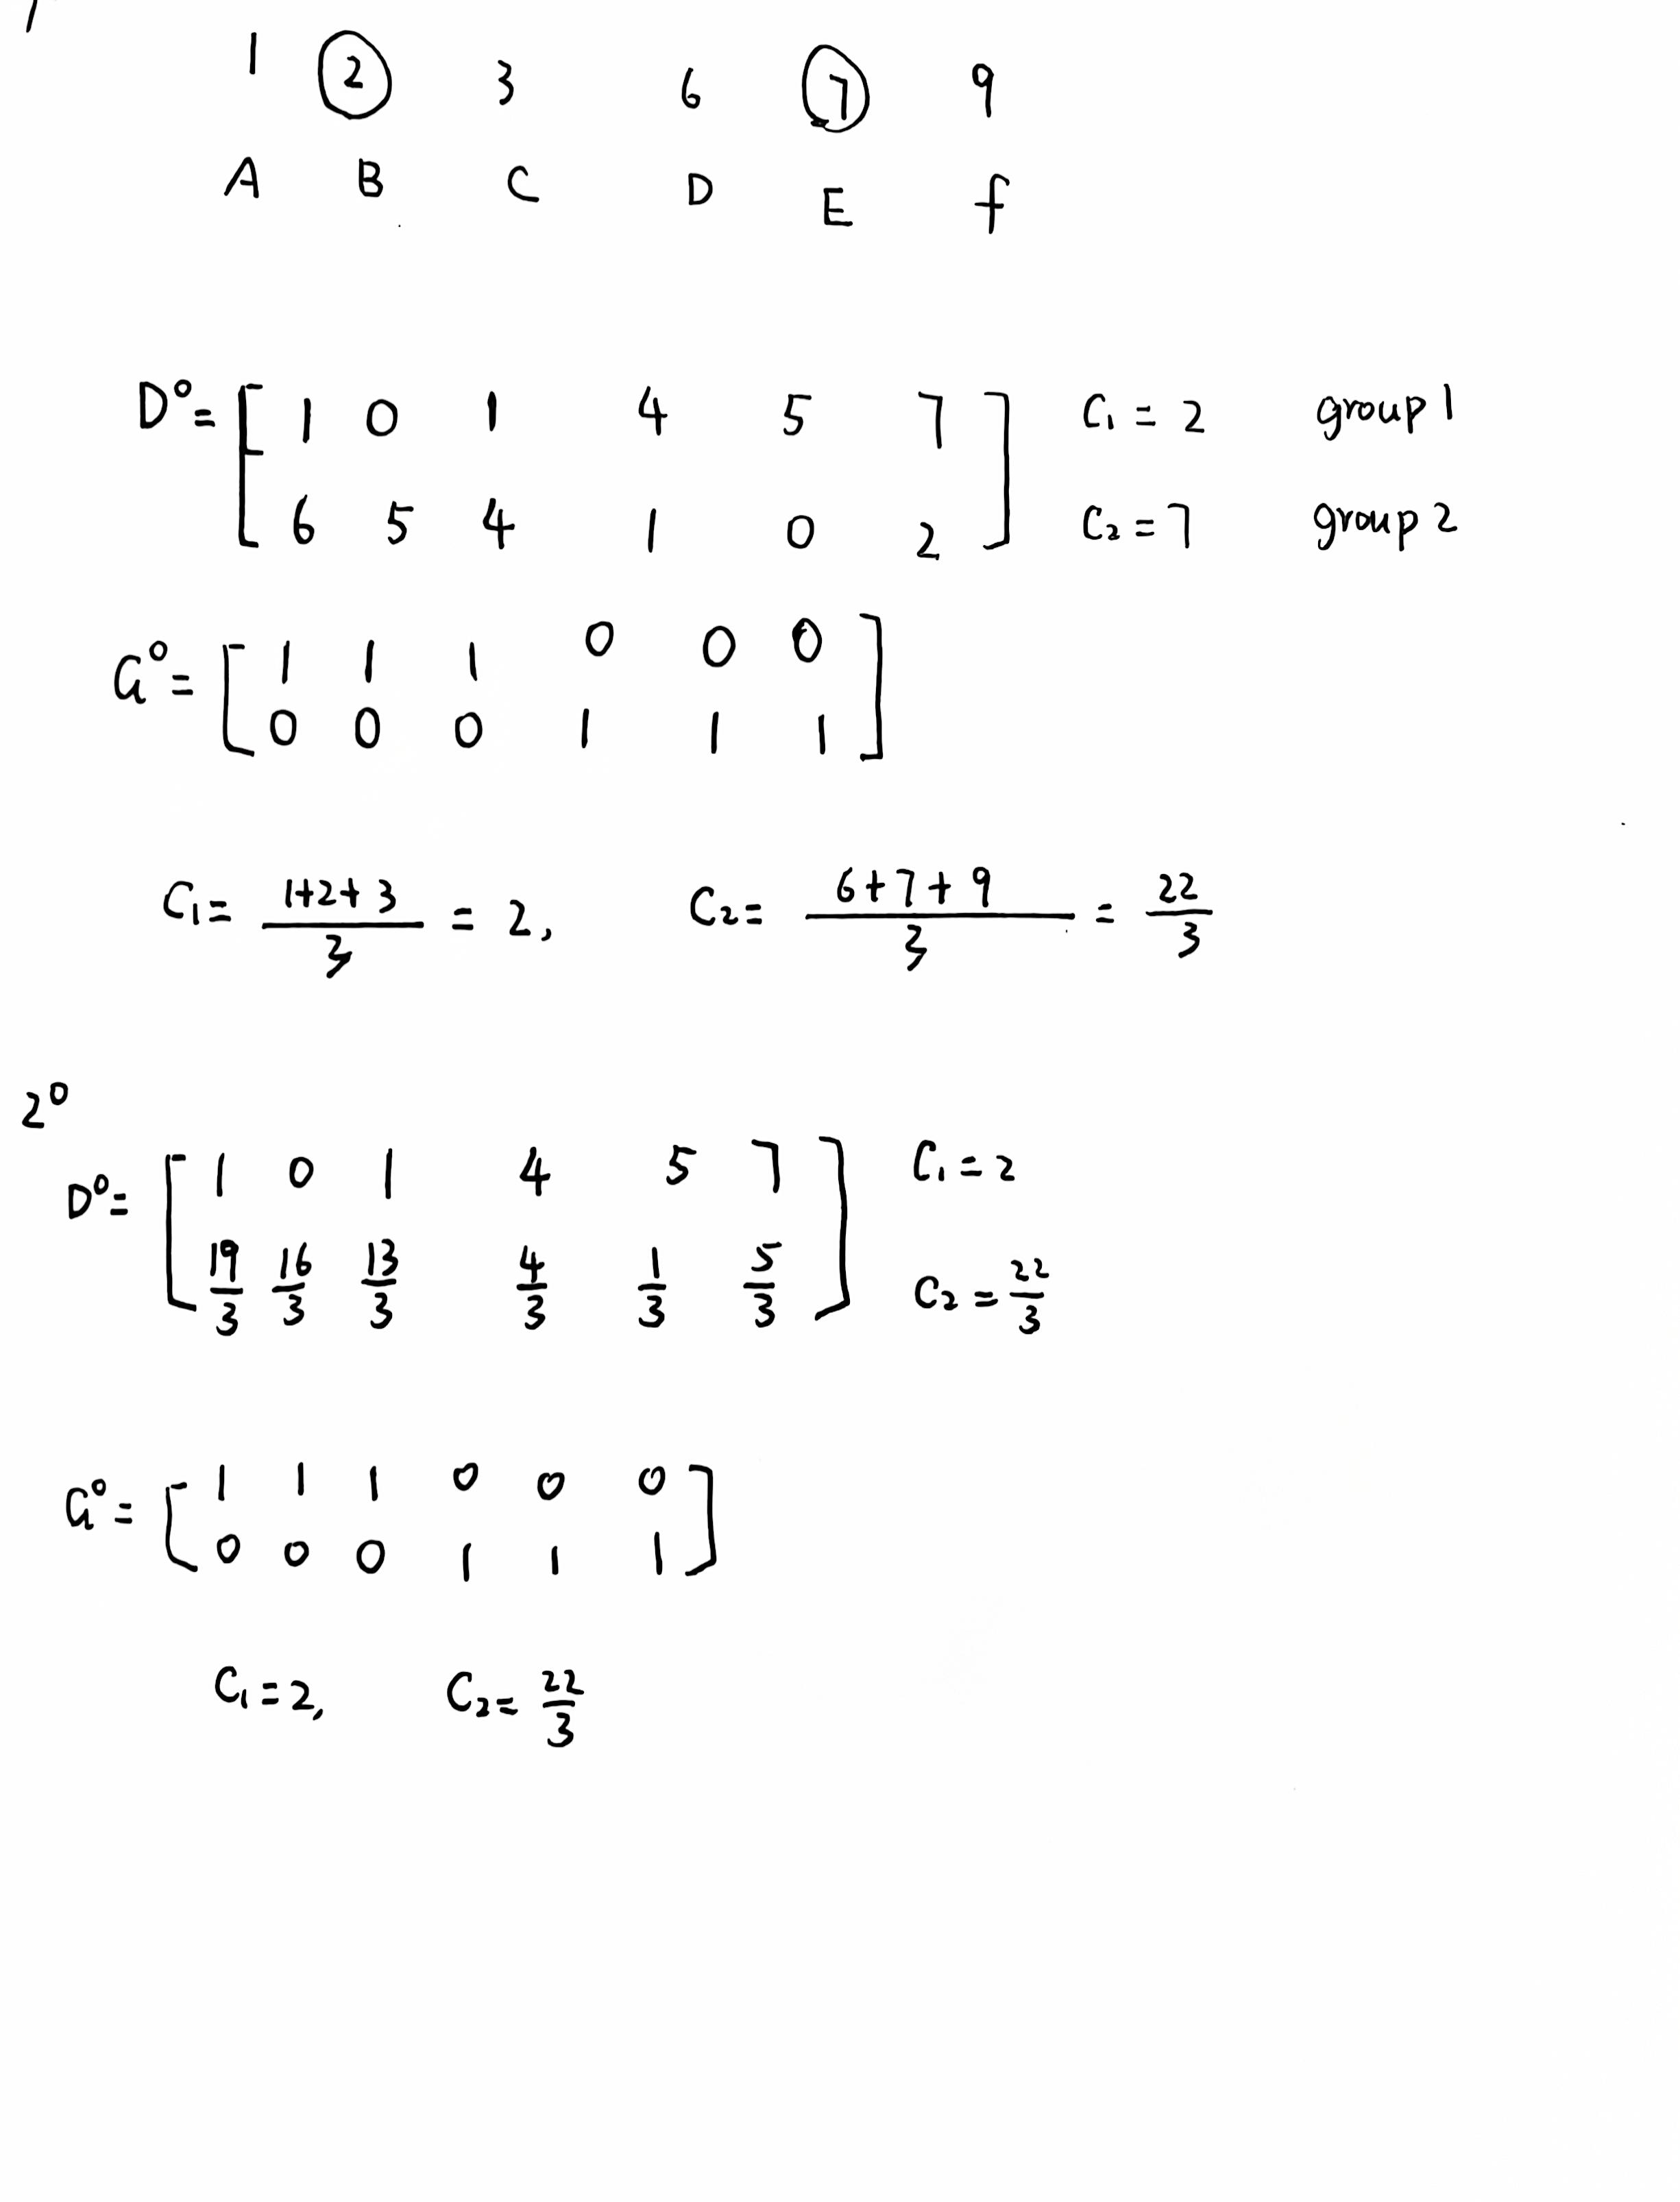 1 2 3 6 7 9
A B C D E f
D⁰= [ 1 0 1 4 5 7 ] C₁ = 2 group 1
6 5 4 1 0 2 C₂ = 7 group 2
G⁰= [ 1 1 1 0 0 0 ]
0 0 0 1 1 1
C₁= (1+2+3)/3 = 2, C₂= (6+7+9)/3 = 22/3
2⁰
D⁰= [ 1 0 1 4 5 7 ] C₁ = 2
19/3 16/3 13/3 4/3 1/3 5/3 C₂ = 22/3
G⁰= [ 1 1 1 0 0 0 ]
0 0 0 1 1 1
C₁ = 2, C₂= 22/3